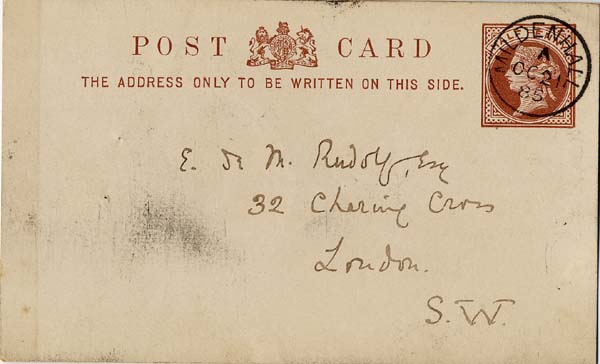 POST CARD
THE ADDRESS ONLY TO BE WRITTEN ON THIS SIDE.
MILDENHALL
A
OC 21
85
E. de M. Rudolf, Esq
32 Charing Cross
London.
S.W.